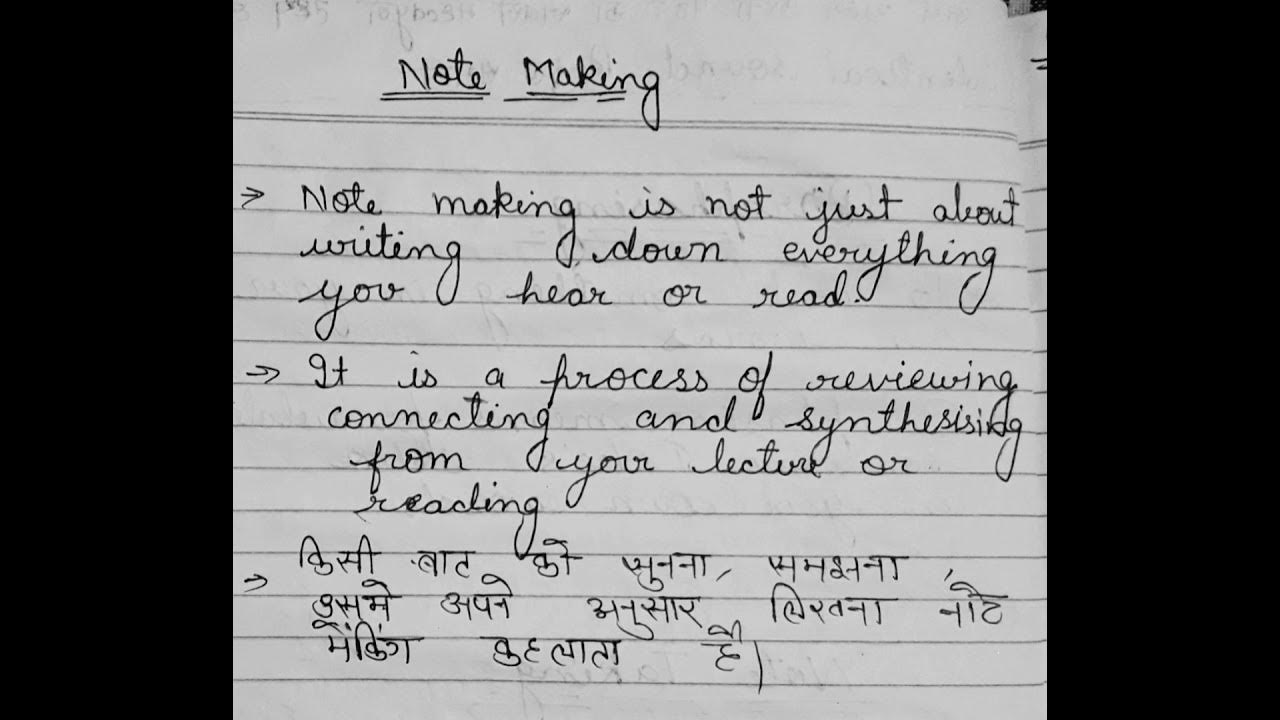 Note Making
⇒ Note making is not just about
writing down everything
you hear or read.
⇒ It is a process of reviewing
connecting and synthesising
from your lecture or
reading
⇒ किसी बाट को सुनना, समझना,
उसमे अपने अनुसार लिखना नोट
मेंकिंग कहलाता है|